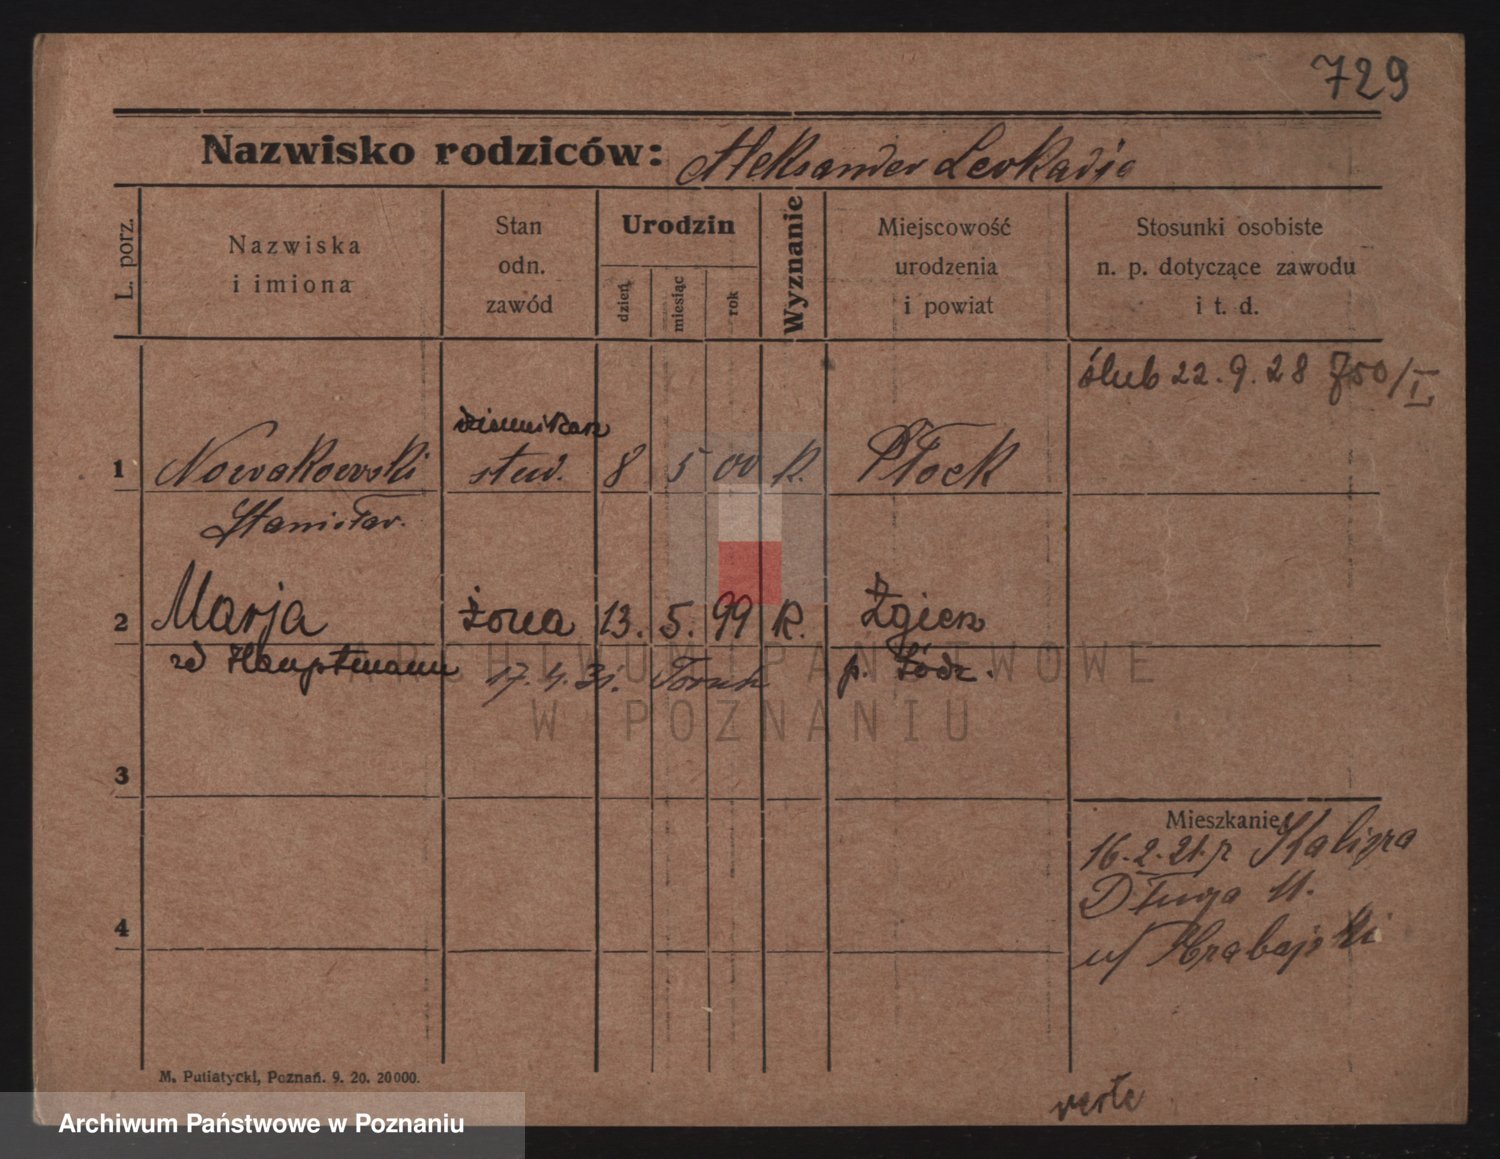 729
Nazwisko rodziców: Aleksander Leokadia
L. porz.
Nazwiska
i imiona
Stan
odn.
zawód
Urodzin
dzień
miesiąc
rok
Wyznanie
Miejscowość
urodzenia
i powiat
Stosunki osobiste
n. p. dotyczące zawodu
i t. d.
ślub 22.9.28 750/I
dziennikarz
1 Nowakowski stud. 8 5 00 K. Płock
Stanisław.
2 Marja żona 13. 5. 99 K. Zgierz
zd Hauptmann p. Łódz.
17.4.31. Toruń
ARCHIWUM PAŃSTWOWE
W POZNANIU
3
Mieszkanie
16.2.21. z Kalisza
Długa 11.
4
u/ Hrabajski
M. Putiatycki, Poznań. 9. 20. 20000.
verte
Archiwum Państwowe w Poznaniu